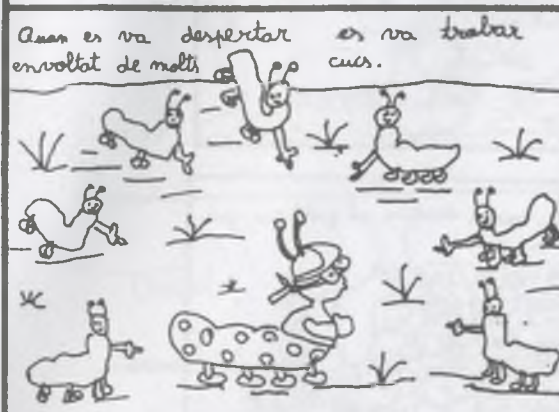 Quan es va despertar es va trobar
envoltat de molts cucs.